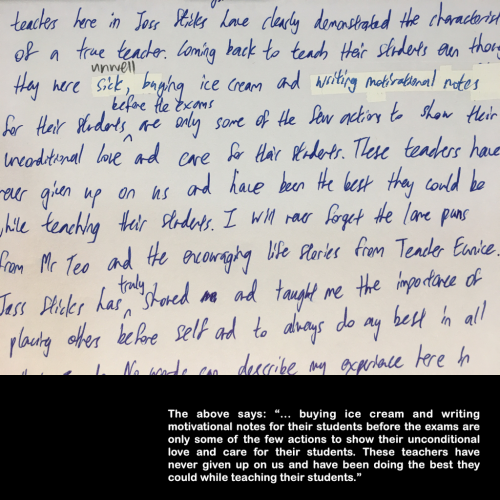 teaches here in Joss Sticks have clearly demonstrated the characterist
of a true teacher. Coming back to teach their students even thoug
unwell
they were sick, buying ice cream and writing motivational notes
before the exams
for their students, are only some of the few actions to show their
unconditional love and care for their students. These teachers have
never given up on us and have been the best they could be
while teaching their students. I will never forget the lame puns
from Mr Teo and the encouraging life stories from Teacher Eunice.
truly
Joss Sticks has showed me and taught me the importance of
placing others before self and to always do my best in all
No words can describe my experience here in
The above says: “... buying ice cream and writing
motivational notes for their students before the exams are
only some of the few actions to show their unconditional
love and care for their students. These teachers have
never given up on us and have been doing the best they
could while teaching their students.”